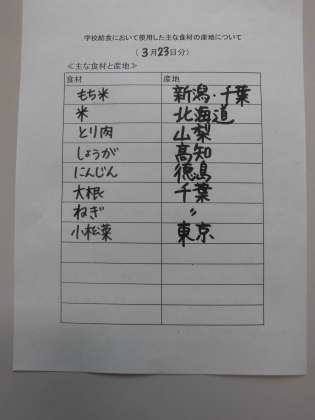 学校給食において使用した主な食材の産地について
（3月23日分）
≪主な食材と産地≫
食材 産地
もち米 新潟・千葉
米 北海道
とり肉 山梨
しょうが 高知
にんじん 徳島
大根 千葉
ねぎ 〃
小松菜 東京